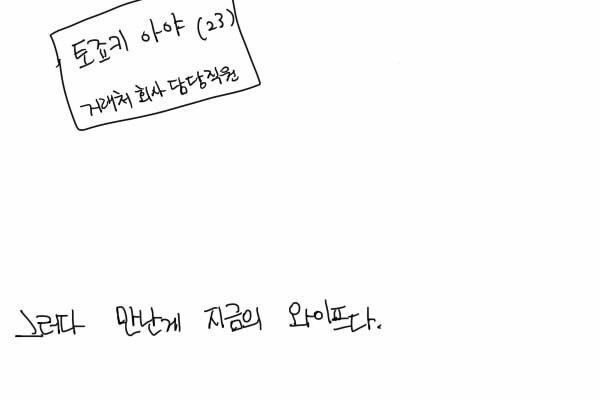 토죠키 아야 (23)
거래처 회사 담당직원
그러다 만난게 지금의 와이프다.